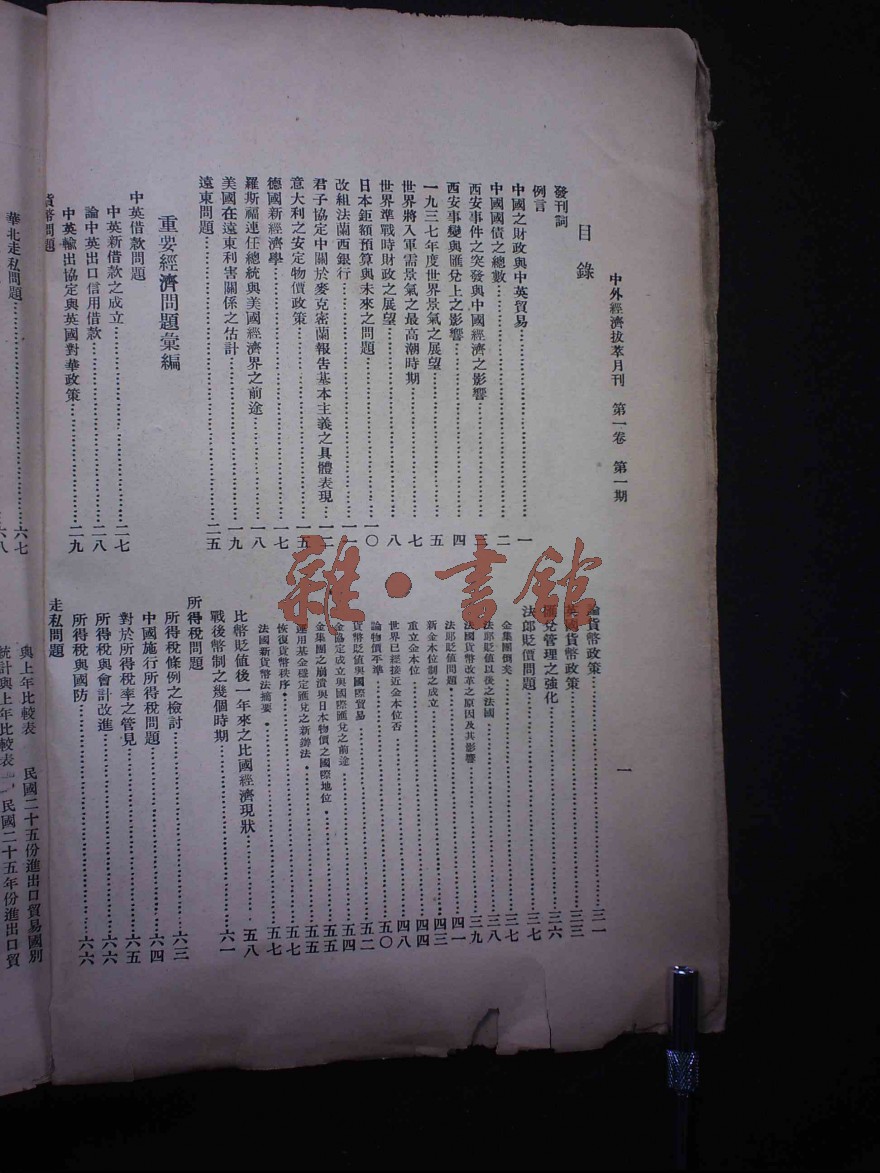 中外經濟拔萃月刊　第一卷　第一期
一
目錄
發刊詞
例言
中國之財政與中英貿易……一
中國國債之總數……二
西安事件之突發與中國經濟之影響……三
西安事變與匯兌上之影響……四
一九三七年度世界景氣之展望……五
世界將入軍需景氣之最高潮時期……七
世界準戰時財政之展望……八
日本鉅額預算與未來之問題……一〇
改組法蘭西銀行……一一
君子協定中關於麥克密蘭報告基本主義之具體表現……一二
意大利之安定物價政策……一五
德國新經濟學……一七
羅斯福連任總統與美國經濟界之前途……一八
美國在遠東利害關係之估計……一九
遠東問題……二五
重要經濟問題彙編
中英借款問題
中英新借款之成立……二七
論中英出口信用借款……二八
中英輸出協定與英國對華政策……二九
貨幣問題
論貨幣政策……三一
英國貨幣政策……三三
匯兌管理之強化……三六
法郎貶價問題……三七
金集團倒矣……三七
法郎貶值以後之法國……三八
法國貨幣改革之原因及其影響……三九
法郎貶值問題……四一
新金本位制之成立……四三
重立金本位……四四
世界已經接近金本位否……四八
論物價不準……五〇
貨幣貶值與國際貿易……五二
金協定成立與國際匯兌之前途……五四
金集團之崩潰與日本物價之國際地位……五五
運用基金穩定匯兌之新辦法……五五
恢復貨幣秩序……五七
法國新貨幣法摘要……五七
比幣貶值後一年來之比國經濟現狀……五八
戰後幣制之幾個時期……六一
所得稅問題
所得稅條例之檢討……六三
中國施行所得稅問題……六四
對於所得稅率之管見……六五
所得稅與會計改進……六六
所得稅與國防……六六
走私問題
華北走私問題……六七
六八
與上年比較表　民國二十五份進出口貿易國別
統計與上年比較表　民國二十五年份進出口貿
雜·書館